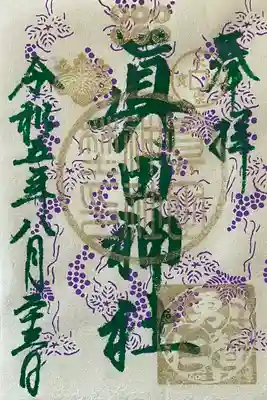 奉拝
眞田神社
令和五年八月二十三日